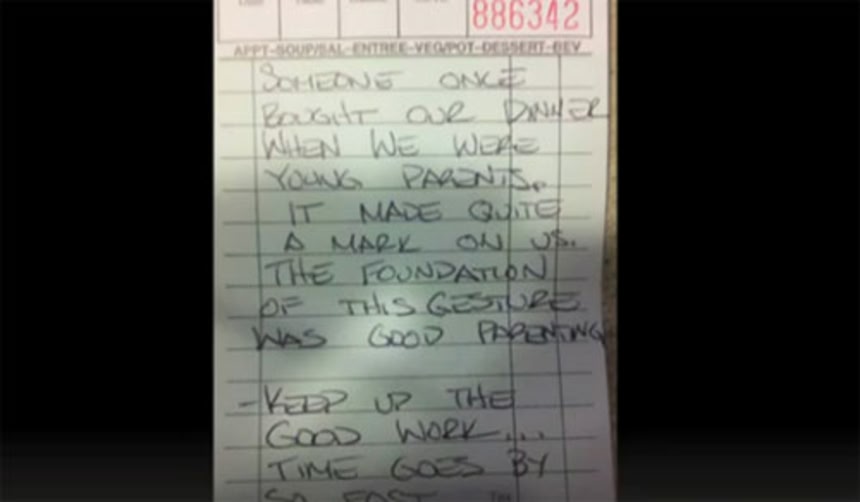 886342
APPT-SOUP/SAL-ENTREE-VEG/POT-DESSERT-BEV
SOMEONE ONCE
BOUGHT OUR DINNER
WHEN WE WERE
YOUNG PARENTS.
IT MADE QUITE
A MARK ON US.
THE FOUNDATION
OF THIS GESTURE
WAS GOOD PARENTING
-KEEP UP THE
GOOD WORK...
TIME GOES BY
SO FAST